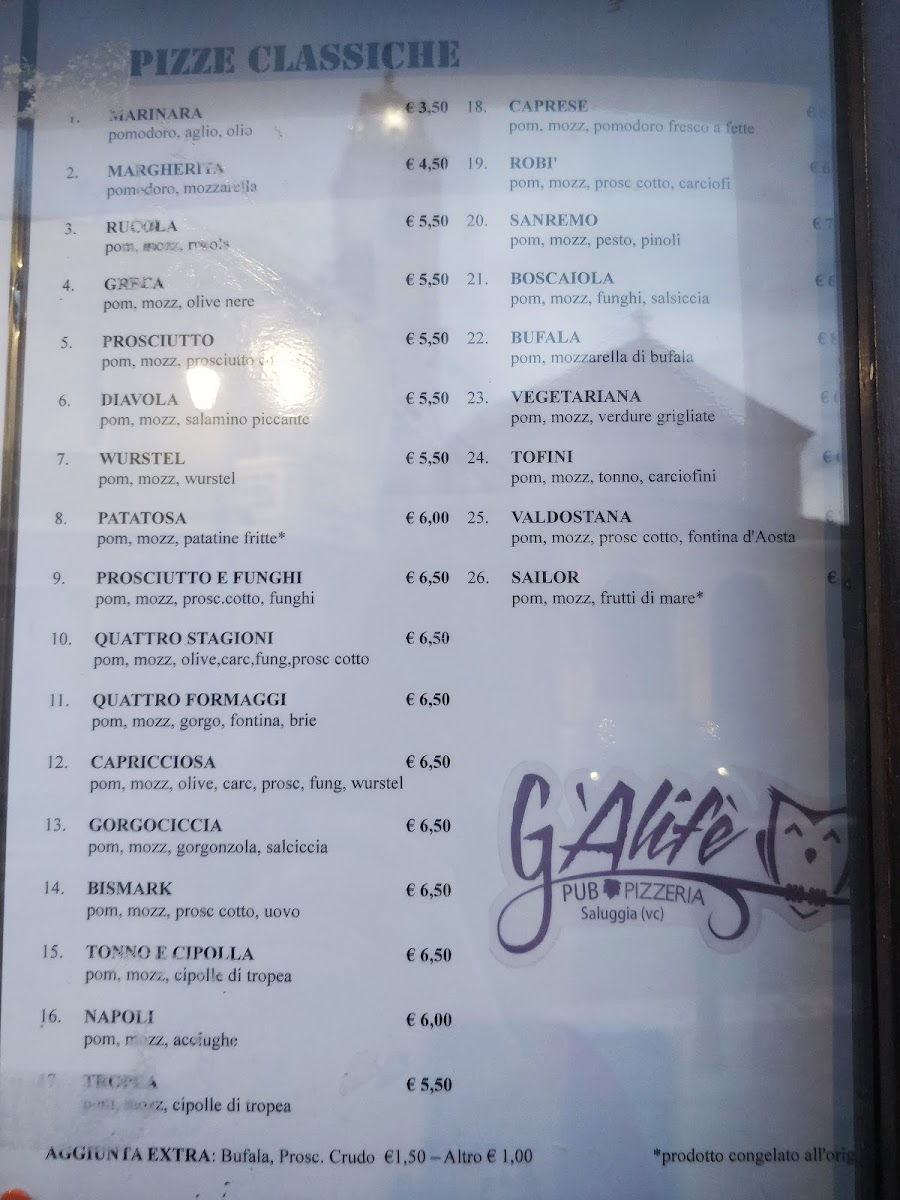 PIZZE CLASSICHE
1. MARINARA € 3,50
pomodoro, aglio, olio
2. MARGHERITA € 4,50
pomodoro, mozzarella
3. RUCOLA € 5,50
pom, mozz, rucola
4. GRECA € 5,50
pom, mozz, olive nere
5. PROSCIUTTO € 5,50
pom, mozz, prosciutto
6. DIAVOLA € 5,50
pom, mozz, salamino piccante
7. WURSTEL € 5,50
pom, mozz, wurstel
8. PATATOSA € 6,00
pom, mozz, patatine fritte*
9. PROSCIUTTO E FUNGHI € 6,50
pom, mozz, prosc.cotto, funghi
10. QUATTRO STAGIONI € 6,50
pom, mozz, olive,carc,fung,prosc cotto
11. QUATTRO FORMAGGI € 6,50
pom, mozz, gorgo, fontina, brie
12. CAPRICCIOSA € 6,50
pom, mozz, olive, carc, prosc, fung, wurstel
13. GORGOCICCIA € 6,50
pom, mozz, gorgonzola, salciccia
14. BISMARK € 6,50
pom, mozz, prosc cotto, uovo
15. TONNO E CIPOLLA € 6,50
pom, mozz, cipolle di tropea
16. NAPOLI € 6,00
pom, mozz, acciughe
17. TROPEA € 5,50
pom, mozz, cipolle di tropea
18. CAPRESE €
pom, mozz, pomodoro fresco a fette
19. ROBI' €
pom, mozz, prosc cotto, carciofi
20. SANREMO € 7
pom, mozz, pesto, pinoli
21. BOSCAIOLA €
pom, mozz, funghi, salsiccia
22. BUFALA €
pom, mozzarella di bufala
23. VEGETARIANA €
pom, mozz, verdure grigliate
24. TOFINI €
pom, mozz, tonno, carciofini
25. VALDOSTANA €
pom, mozz, prosc cotto, fontina d'Aosta
26. SAILOR €
pom, mozz, frutti di mare*
G'Alifè
PUB PIZZERIA
Saluggia (vc)
AGGIUNTA EXTRA: Bufala, Prosc. Crudo €1,50 – Altro € 1,00
*prodotto congelato all'orig